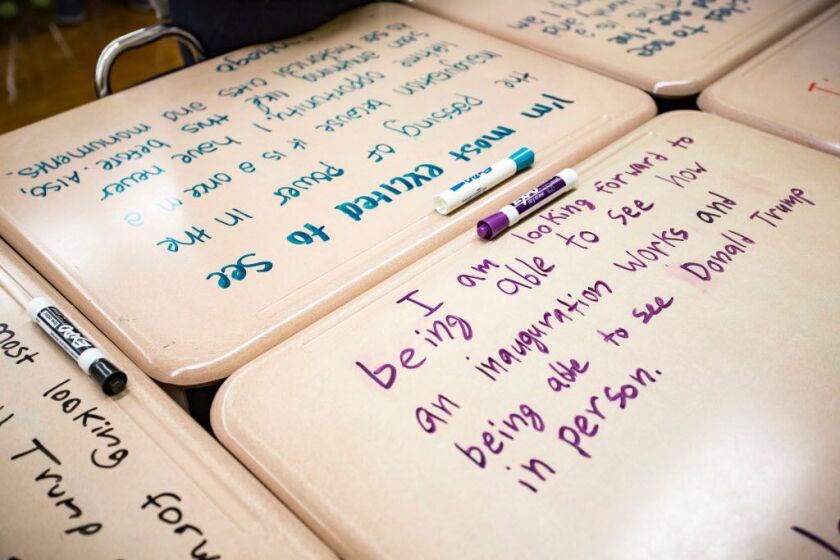 I'm most excited to see
the passing of power in the
inauguration because it is a once in a
lifetime opportunity I have never
anything like this before. Also,
to see historical cites and monuments.
EXPO
EXPO
I am looking forward to
being able to see how
an inauguration works and
being able to see Donald Trump
in person.
EXPO
most looking forw
Trump